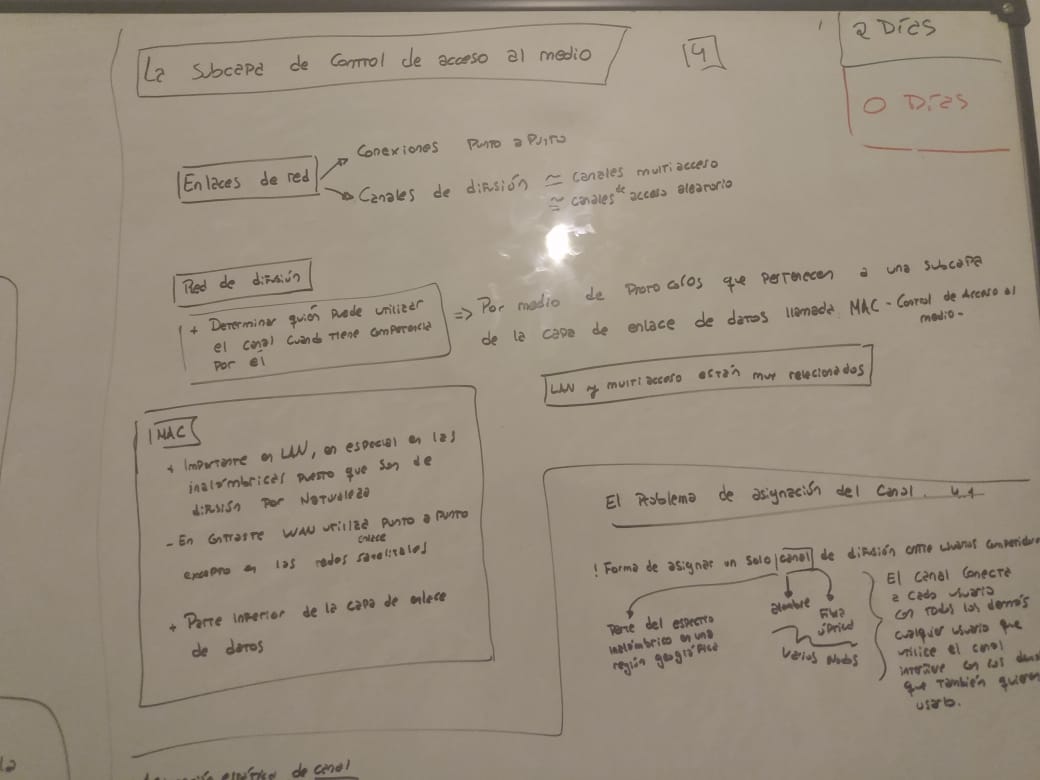 La subcapa de control de acceso al medio
4
2 Días
0 Días
Enlaces de red
Conexiones Punto a Punto
Canales de difusión ≃ canales multiacceso
≃ canales de acceso aleatorio
Red de difusión
+ Determinar quién puede utilizar
el canal cuando tiene competencia
por él
=> Por medio de Protocolos que pertenecen a una subcapa
de la capa de enlace de datos llamada MAC - Control de Acceso al
medio-
LAN y multiacceso están muy relacionados
MAC
+ Importante en LAN, en especial en las
inalámbricas puesto que son de
difusión por Naturaleza
- En contraste WAN utiliza punto a punto
excepto en las redes satelitales
enlace
+ Parte inferior de la capa de enlace
de datos
El Problema de asignación del canal. 4.1
! Forma de asignar un solo canal de difusión entre usuarios
Parte del espectro
inalámbrico en una
región geográfica
alambre
Fibra
óptica
Varios Nodos
El canal conecta
a cada usuario
con todos los demás
cualquier usuario que
utilice el canal
interfiere con los
que también quieren
usarlo.
de canal